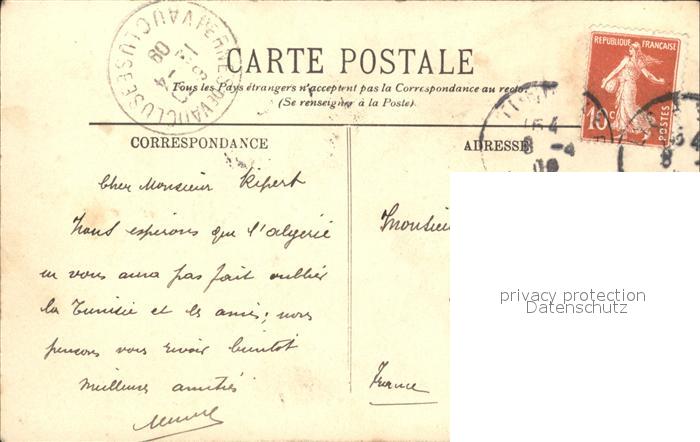 CARTE POSTALE
Tous les Pays étrangers n'acceptent pas la Correspondance au recto.
(Se renseigner à la Poste).
REPUBLIQUE FRANÇAISE
10c
POSTES
8 -4
09
CORRESPONDANCE
ADRESSE
Cher Monsieur Kipert
Nous esperons que l'algerie
ne vous aura pas fait oublier
la Tunisie et les amis; nous
pensons vous revoir bientot
Meilleures amitiés
Monsieur
France
privacy protection
Datenschutz